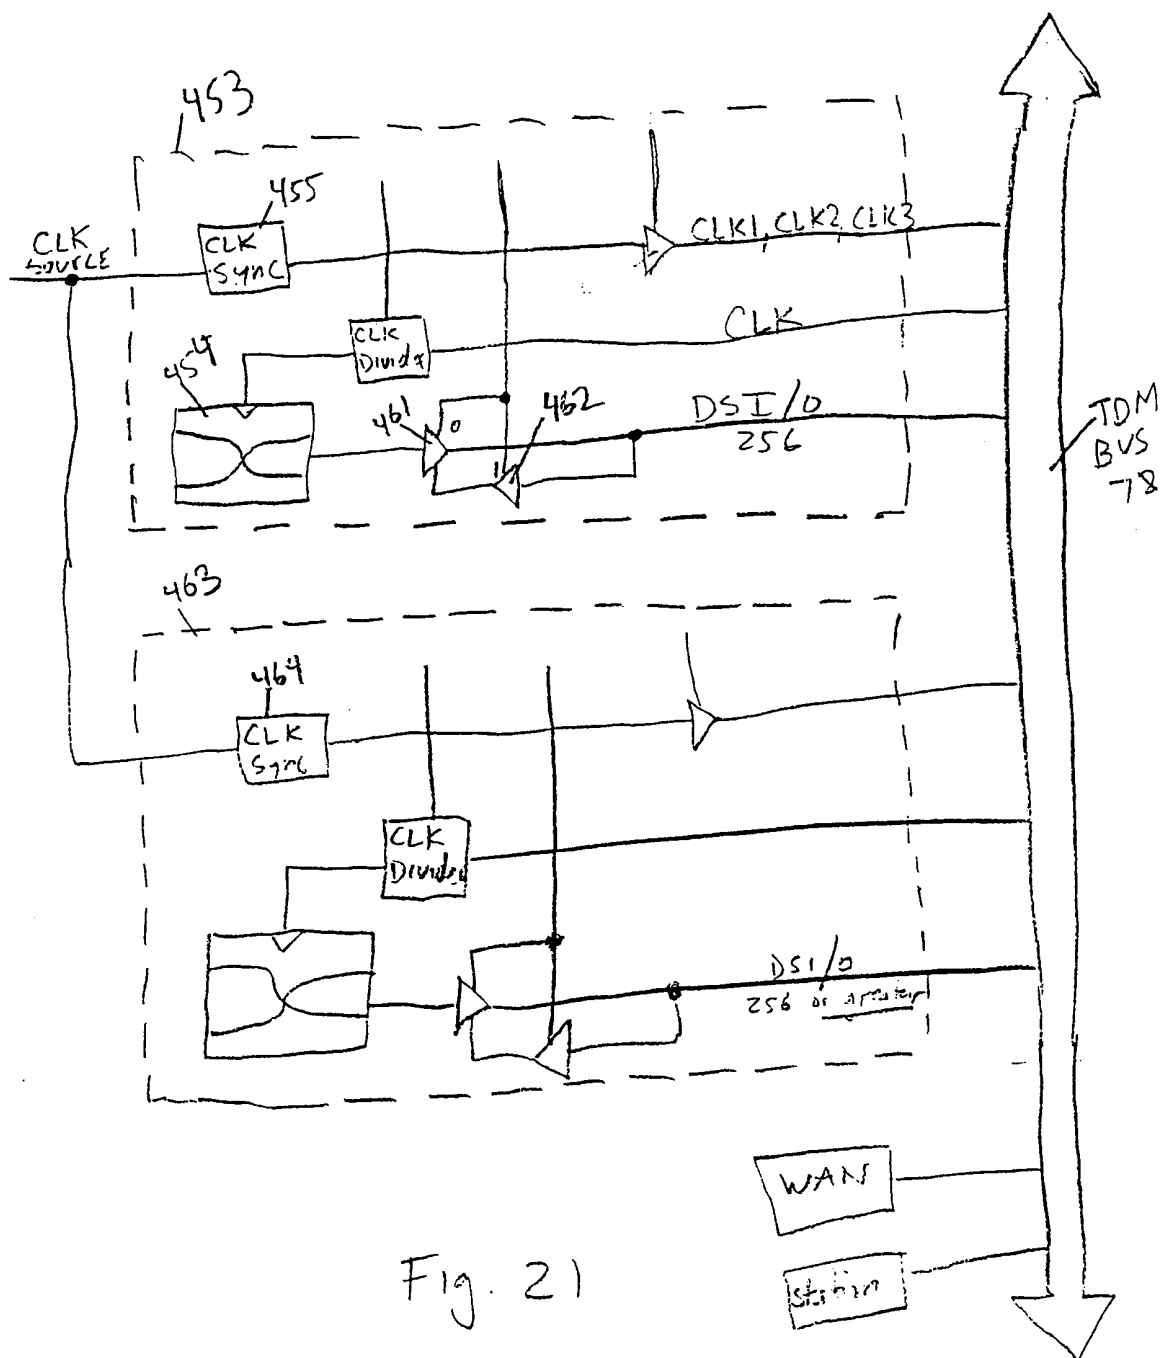 453
455
CLK
SOURCE
CLK
Sync
CLK1, CLK2, CLK3
CLK
Divider
CLK
454
461
0
462
1
DSI/O
256
TDM
BUS
78
463
464
CLK
Sync
CLK
Divider
DSI/O
256 or greater
WAN
Station
Fig. 21